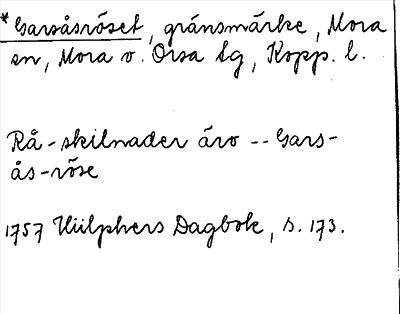 *Garsåsröset, gränsmärke, Mora
sn, Mora o. Orsa tg, Kopp. l.
Rå-skilnader äro -- Gars-
ås-röse
1757 Hülphers Dagbok, s. 173.